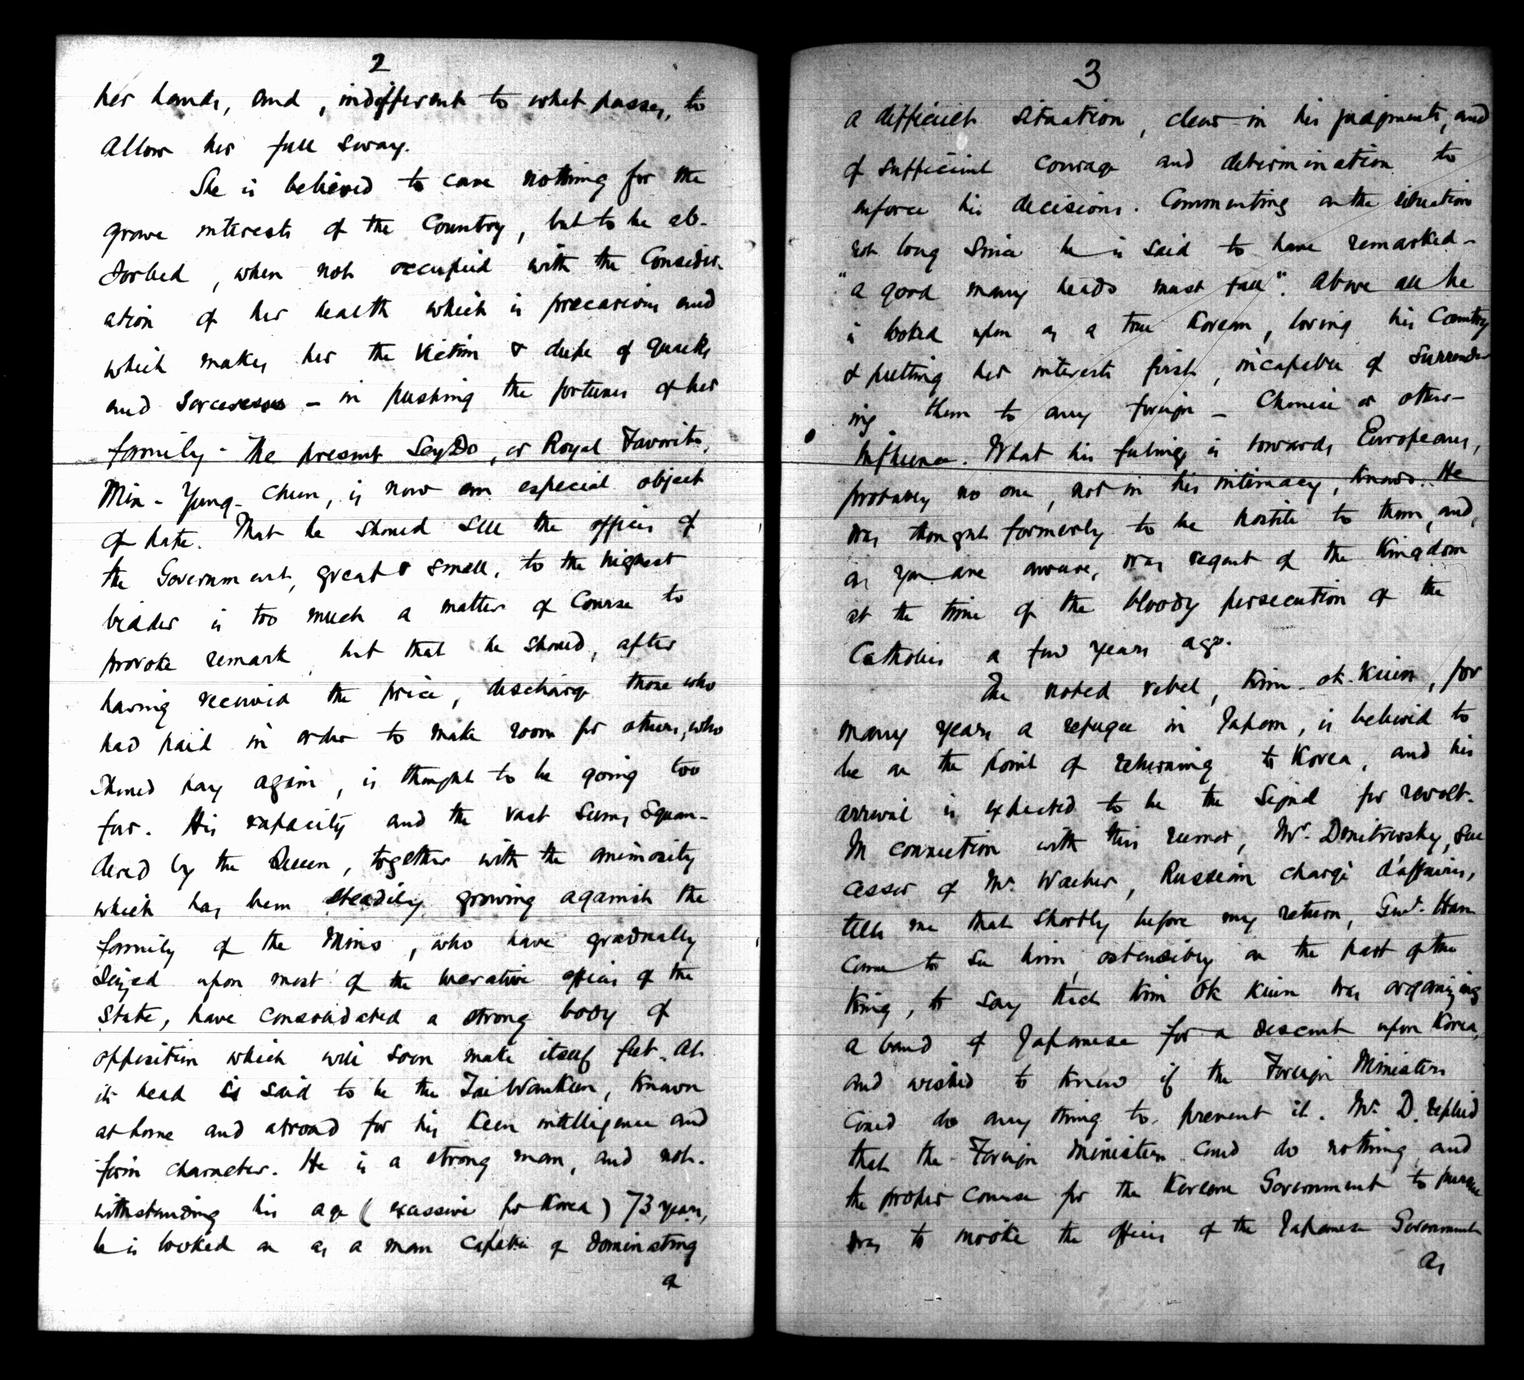 2
her hands, and, indifferent to what passes, to
allow her full sway.
She is believed to care nothing for the
grave interests of the Country, but to be ab-
sorbed, when not occupied with the Consider-
ation of her health which is precarious and
which makes her the victim & dupe of quacks
and sorceresses - in pushing the fortunes of her
family - The present SeyDo, or Royal Favorite,
Min - Yung - Chun, is now an especial object
of hate. That he should sell the offices of
the Government, great & small, to the highest
bidder is too much a matter of Course to
provoke remark, but that he should, after
having received the price, discharge those who
had paid in order to make room for others, who
should pay again, is thought to be going too
far. His rapacity and the vast sums squan-
dered by the Queen, together with the animosity
which has been steadily growing against the
family of the Mins, who have gradually
seized upon most of the lucrative offices of the
State, have consolidated a strong body of
opposition which will soon make itself felt. At
its head is said to be the Tai Wan Kun, known
at home and abroad for his keen intelligence and
firm character. He is a strong man, and not-
withstanding his age (excessive for Korea) 73 years,
he is looked on as a man capable of dominating
a
3
a difficult situation, clear in his judgments, and
of sufficient courage and determination to
enforce his decisions. Commenting on the situation
not long since he is said to have remarked -
"a good many heads must fall". Above all he
is looked upon as a true Korean, loving his Country
& putting her interests first, incapable of surrender
ing them to any foreign - Chinese or other -
influence. What his feeling is towards Europeans,
probably no one, not in his intimacy, knows. He
was thought formerly to be hostile to them, and,
as you are aware, was regent of the Kingdom
at the time of the bloody persecution of the
Catholics a few years ago.
The noted rebel, Kim-ok-Kiun, for
many years a refugee in Japan, is believed to
be on the point of returning to Korea, and his
arrival is expected to be the signal for revolt.
In connection with this rumor, Mr. Dmitrevsky, suc
cessor of Mr. Waeber, Russian chargé d'affaires,
tells me that shortly before my return, Genl. Han
came to see him, ostensibly on the part of the
King, to say that Kim Ok Kiun was organizing
a band of Japanese for a descent upon Korea,
and wished to know if the Foreign Ministers
could do any thing to prevent it. Mr. D. replied
that the Foreign Ministers could do nothing and
the proper course for the Korean Government to pursue
was to invoke the offices of the Japanese Government
as